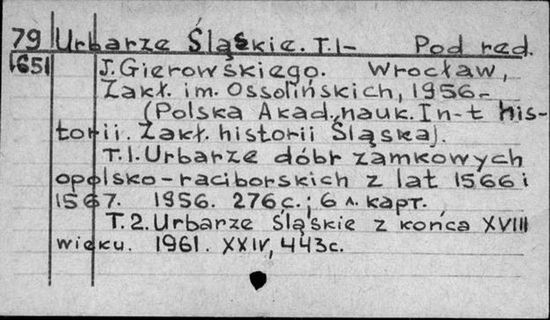 79 Urbarze Śląskie. T.1- Pod red.
651 J. Gierowskiego. Wrocław,
Zakł. im. Ossolińskich, 1956-
(Polska Akad. nauk. In-t his-
torii. Zakł. historii Śląska).
T.1. Urbarze dóbr zamkowych
opolsko-raciborskich z lat 1566 i
1567. 1956. 276 с.; 6 л. карт.
T.2. Urbarze śląskie z końca XVIII
wieku. 1961. XXIV, 443 с.